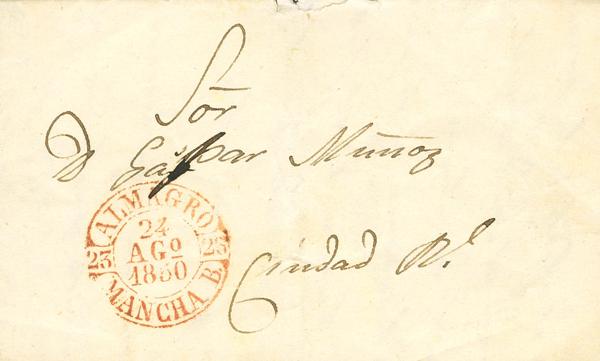 Sor
D Gaspar Munoz
Ciudad Rl.
ALMAGRO
24
AGO
1850
23 23
MANCHA B.